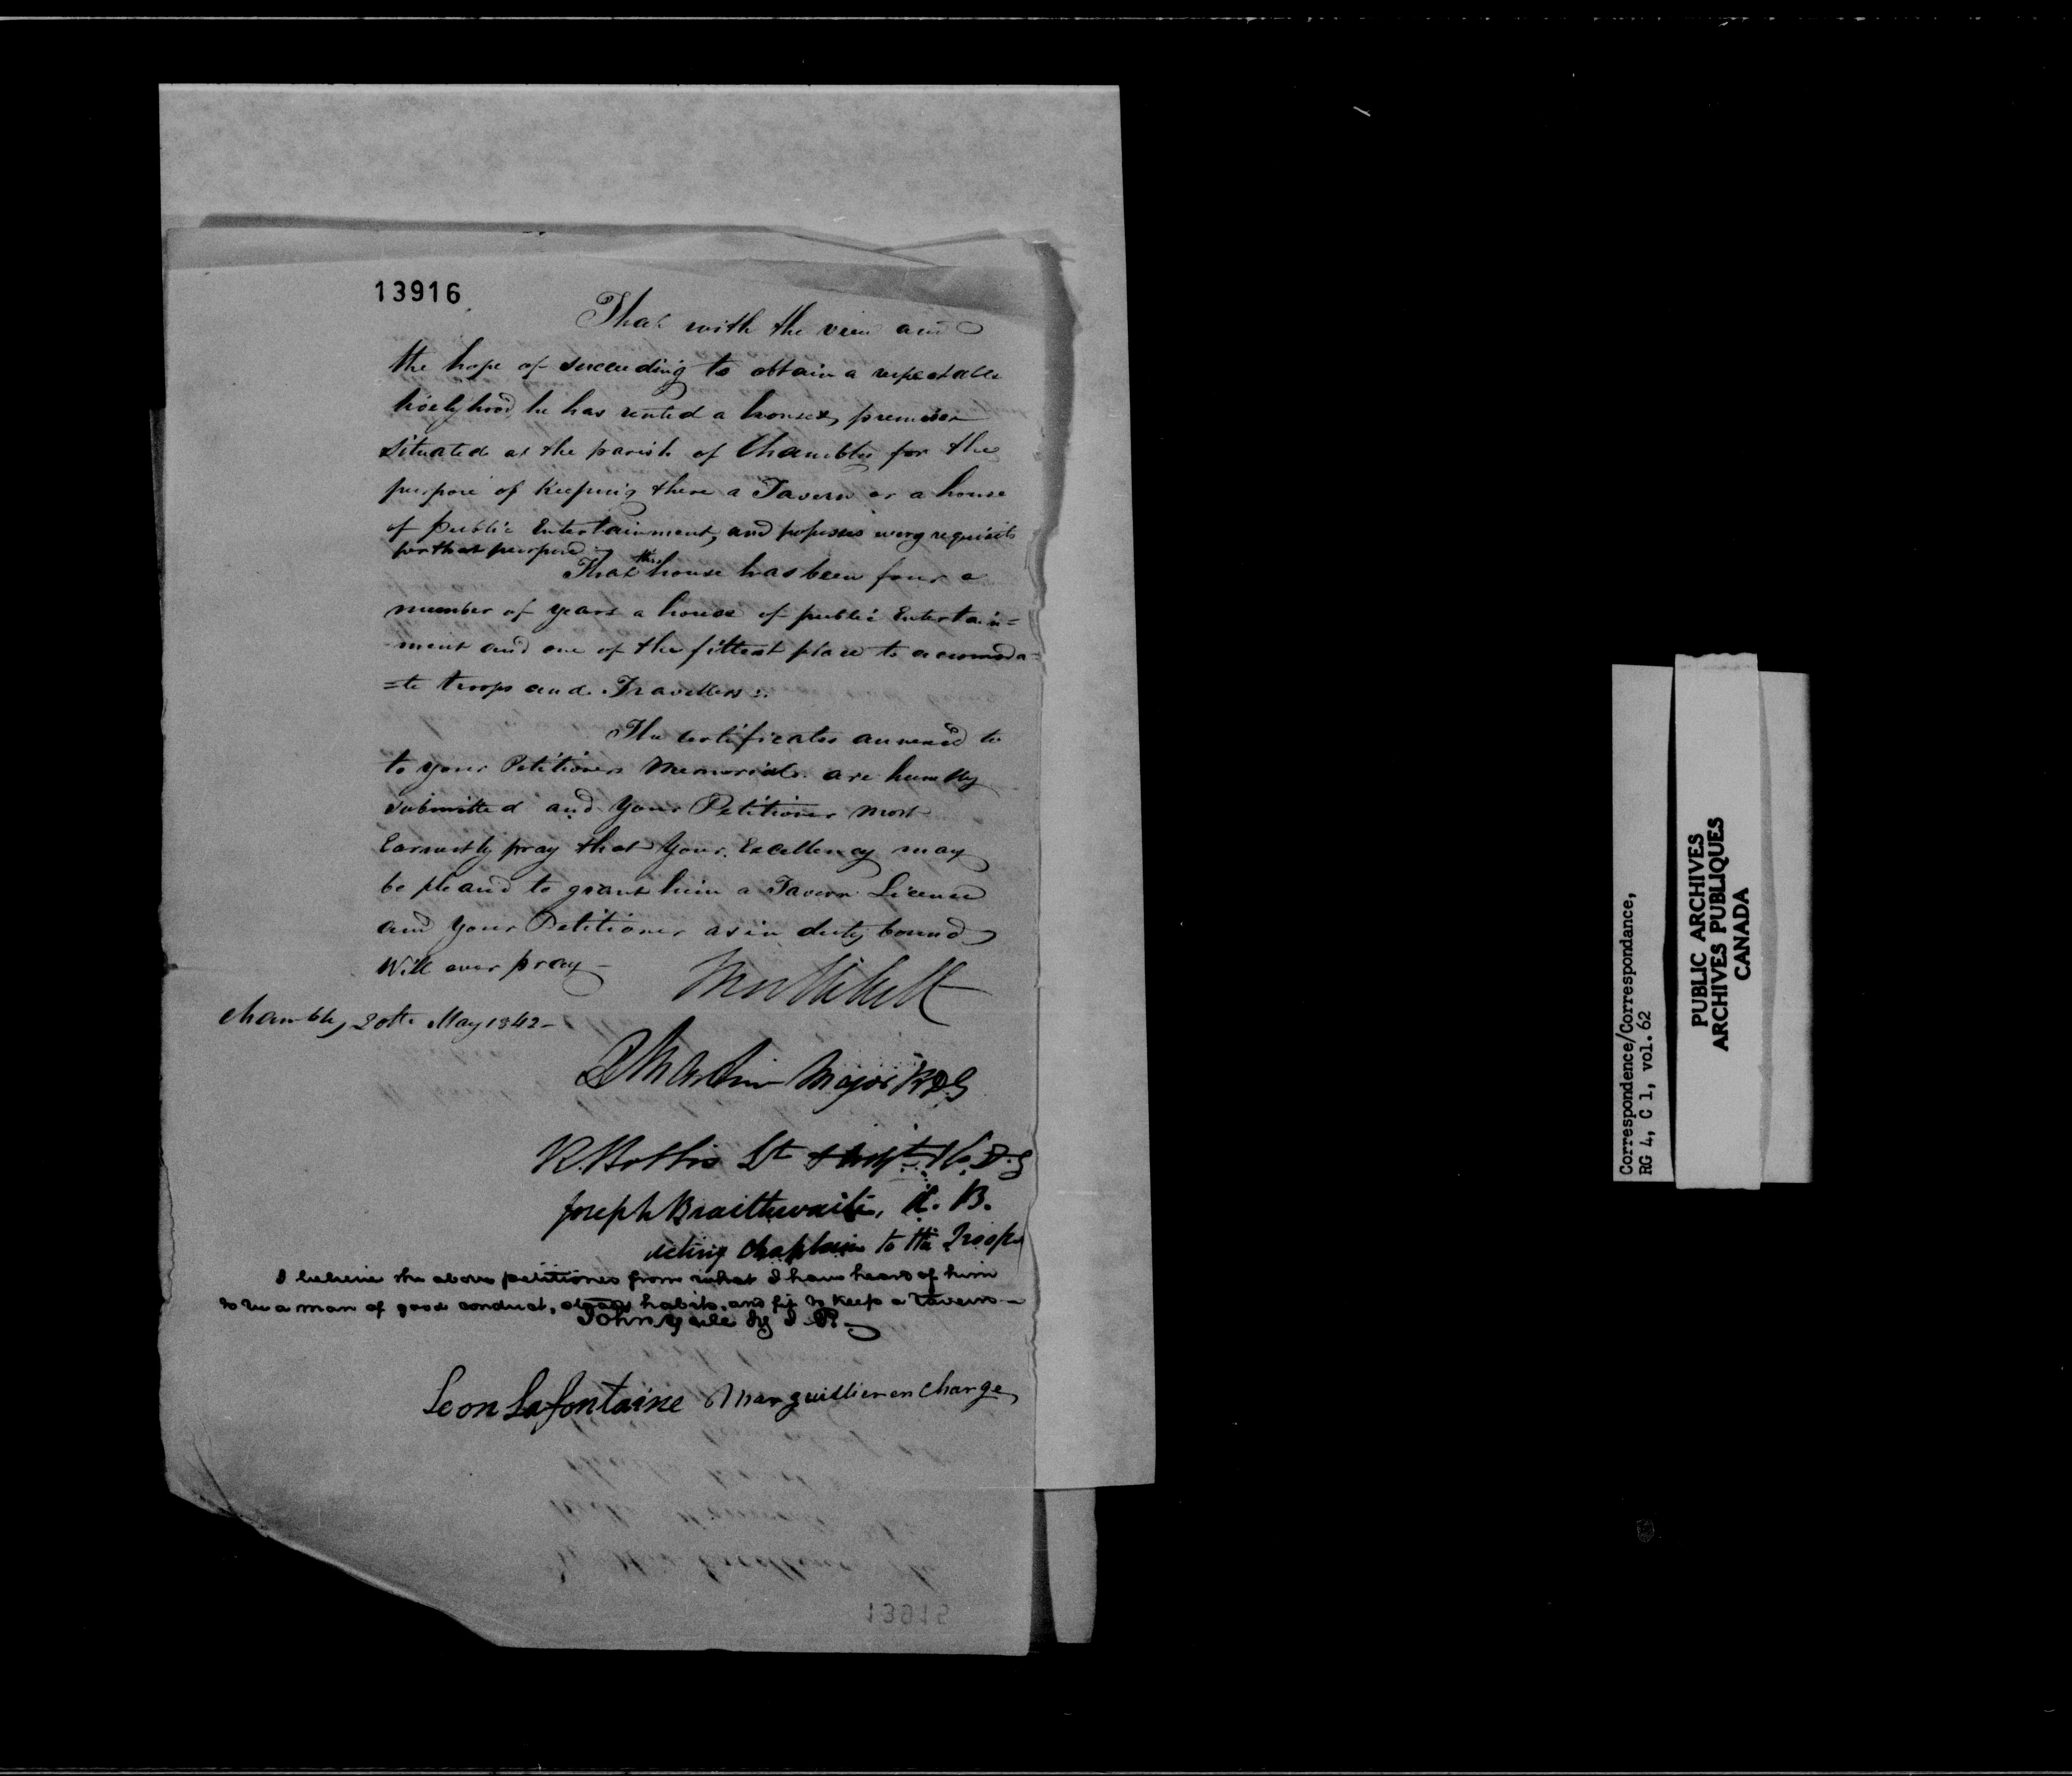 13916
That with the view and
the hope of succeeding to obtain a respectable
livelyhood, he has rented a house & premises
situated at the parish of Chambly for the
purpose of Keeping there a Tavern or a house
of public Entertainment, and possesses every requisits
for that purpose
That this house has been four a
number of years a house of public Entertain=
ment and one of the fittest place to accomoda=
=te troops and Travellers.
The certificates annexed to
to your Petitioners Memorial are humbly
submitted and your Petitioner most
Earnestly pray that your Excellency may
be pleased to grant him a Tavern License
and your Petitioner as in duty bound
Will ever pray
Chambly 20th May 1842
Martin Major K.D.G
Lt & Adjt K.D.G
Joseph Braithwaite, A. B.
acting Chaplain to the Troops
I believe the above petitioner from what I have heard of him
to be a man of good conduct, steady habits, and fit to keep a Tavern—
John Yule J.P.
Leon Lafontaine Marguillier en Charge
13915
Correspondence/Correspondance,
RG 4, C 1, vol. 62
PUBLIC ARCHIVES
ARCHIVES PUBLIQUES
CANADA